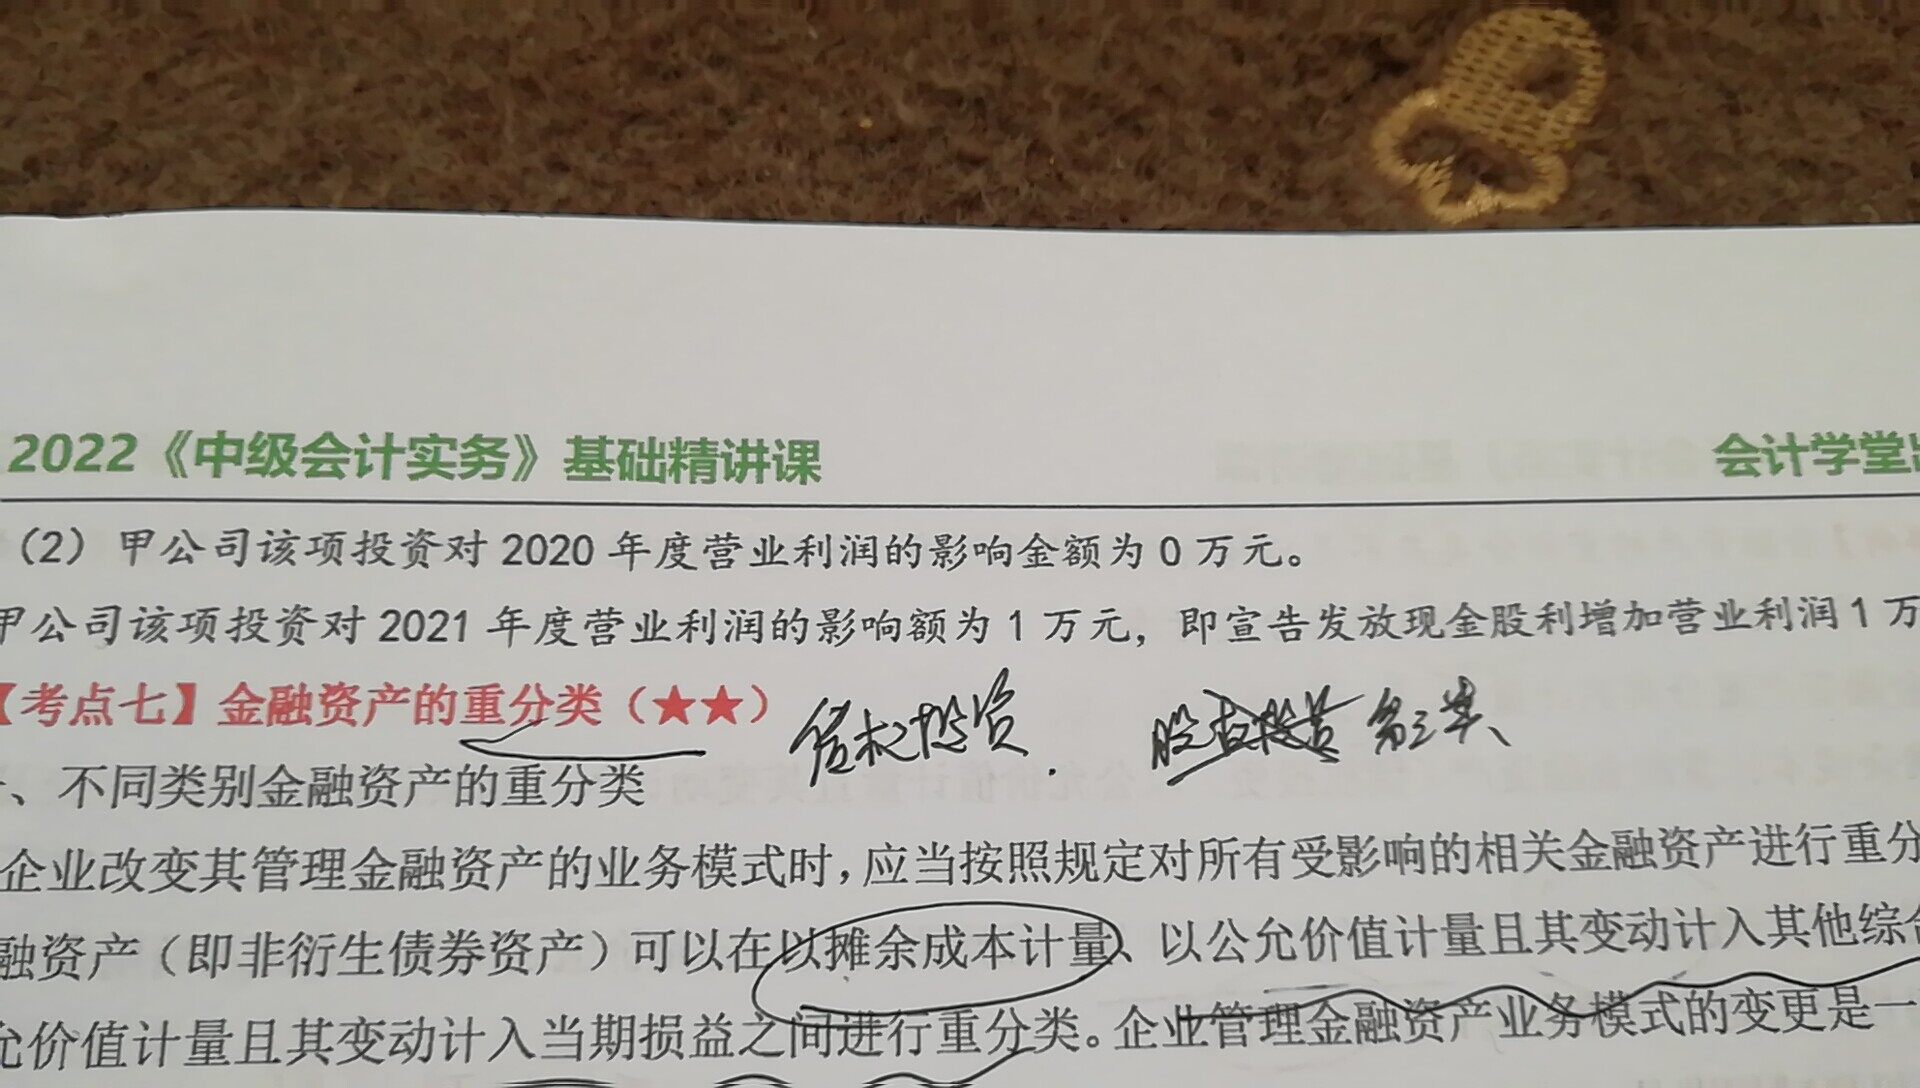 2022《中级会计实务》基础精讲课 会计学堂
（2）甲公司该项投资对 2020 年度营业利润的影响金额为 0 万元。
甲公司该项投资对 2021 年度营业利润的影响额为 1 万元，即宣告发放现金股利增加营业利润 1 万
【考点七】金融资产的重分类（★★） 债权投资. 第三类、
、不同类别金融资产的重分类
企业改变其管理金融资产的业务模式时，应当按照规定对所有受影响的相关金融资产进行重分
融资产（即非衍生债券资产）可以在以摊余成本计量、以公允价值计量且其变动计入其他综合
允价值计量且其变动计入当期损益之间进行重分类。企业管理金融资产业务模式的变更是一